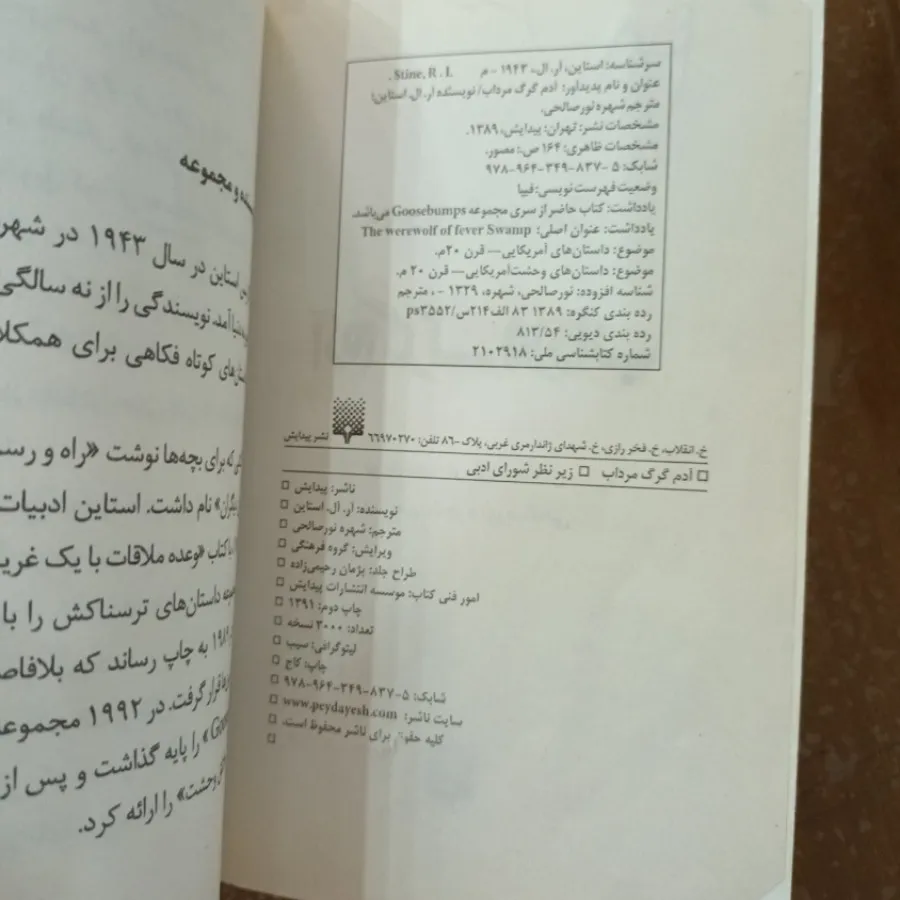 سرشناسه: استاین، آر. ال.، ۱۹۴۳ - م Stine, R. L.
عنوان و نام پدیدآور: آدم گرگ مرداب/ نویسنده آر. ال. استاین؛
مترجم شهره نورصالحی.
مشخصات نشر: تهران: پیدایش، ۱۳۸۹.
مشخصات ظاهری: ۱۶۴ ص.: مصور.
شابک: ۵ -۸۳۷-۳۴۹-۹۶۴-۹۷۸
وضعیت فهرست نویسی: فیپا
یادداشت: کتاب حاضر از سری مجموعه Goosebumps می‌باشد.
یادداشت: عنوان اصلی: The werewolf of fever Swamp
موضوع: داستان‌های آمریکایی— قرن ۲۰م.
موضوع: داستان‌های وحشت‌آمریکایی— قرن ۲۰ م.
شناسه افزوده: نورصالحی، شهره، ۱۳۲۹ - ، مترجم
رده بندی کنگره: ۱۳۸۹ ۸۳ الف۲۱۴س/ps۳۵۵۲
رده بندی دیویی: ۸۱۳/۵۴
شماره کتابشناسی ملی: ۲۱۰۲۹۱۸
نشر پیدایش
خ. انقلاب، خ. فخر رازی، خ. شهدای ژاندارمری غربی، پلاک -۸۶ تلفن: ۶۶۹۷۰۲۷۰
آدم گرگ مرداب زیر نظر شورای ادبی
ناشر: پیدایش
نویسنده: آر. آل. استاین
مترجم: شهره نورصالحی
ویرایش: گروه فرهنگی
طراح جلد: پژمان رحیمی‌زاده
امور فنی کتاب: موسسه انتشارات پیدایش
چاپ دوم: ۱۳۹۱
تعداد: ۲۰۰۰ نسخه
لیتوگرافی: سیب
چاپ: کاج
شابک: ۵-۸۳۷-۳۴۹-۹۶۴-۹۷۸
سایت ناشر: www.peydayesh.com
کلیه حقوق برای ناشر محفوظ است.
و مجموعه
استاین در سال ۱۹۴۳ در شهر
آمد. نویسندگی را از نه سالگی
کوتاه فکاهی برای همکلا
که برای بچه‌ها نوشت «راه و رسم
نام داشت. استاین ادبیات
کتاب «وعده ملاقات با یک غری
داستان‌های ترسناکش را با
به چاپ رساند که بلافاص
قرار گرفت. در ۱۹۹۲ مجموعه
را پایه گذاشت و پس از
وحشت» را ارائه کرد.